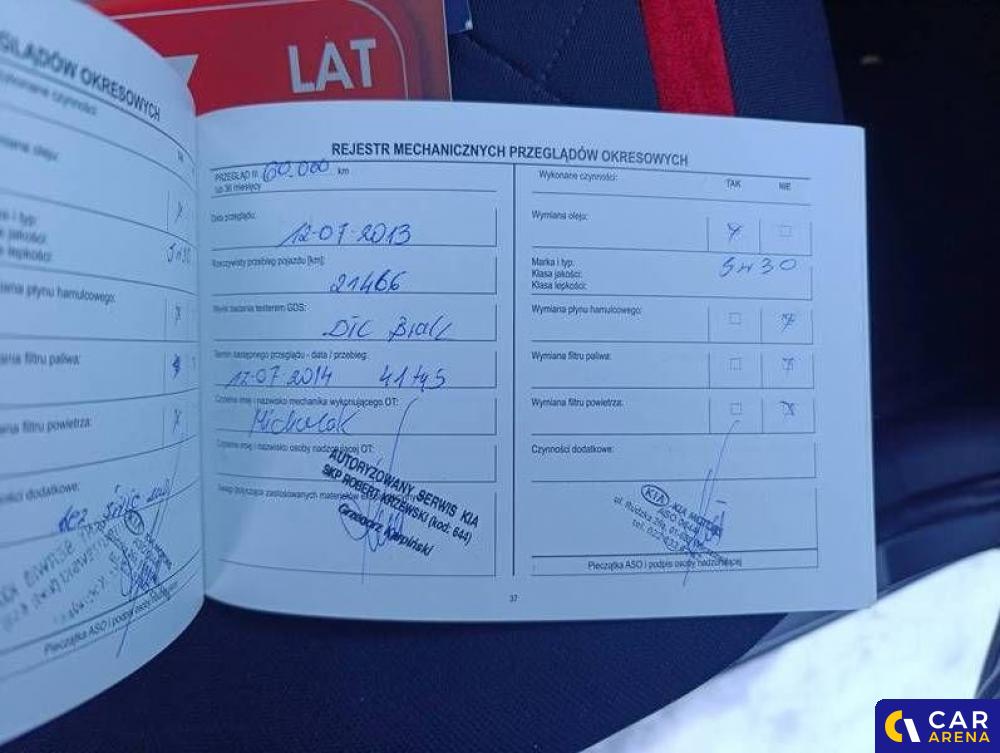 LAT
GLĄDÓW OKRESOWYCH
Wykonane czynności:
TAK
miana oleju:
5w30
miana płynu hamulcowego:
miana filtru paliwa:
miana filtru powietrza:
ności dodatkowe:
Pieczątka ASO i podpis osoby
REJESTR MECHANICZNYCH PRZEGLĄDÓW OKRESOWYCH
PRZEGLĄD 60.000 km
lub 36 miesięcy
Data przeglądu:
12-07-2013
Rzeczywisty przebieg pojazdu [km]:
21466
Wynik badania testerem GDS:
DTC Brak
Termin następnego przeglądu - data / przebieg:
12-07-2014
Czytelne imię i nazwisko mechanika wykonującego OT:
Michalak
Czytelne imię i nazwisko osoby nadzorującej OT:
AUTORYZOWANY SERWIS KIA
SKP ROBERT KRZEWSKI (kod: 644)
Grzegorz Karpiński
Wykonane czynności:
TAK NIE
Wymiana oleju:
Marka i typ:
5w30
Klasa jakości:
Klasa lepkości:
Wymiana płynu hamulcowego:
Wymiana filtru paliwa:
Wymiana filtru powietrza:
Czynności dodatkowe:
KIA KIA MOTORS
Pieczątka ASO i podpis osoby nadzorującej
37
CAR
ARENA